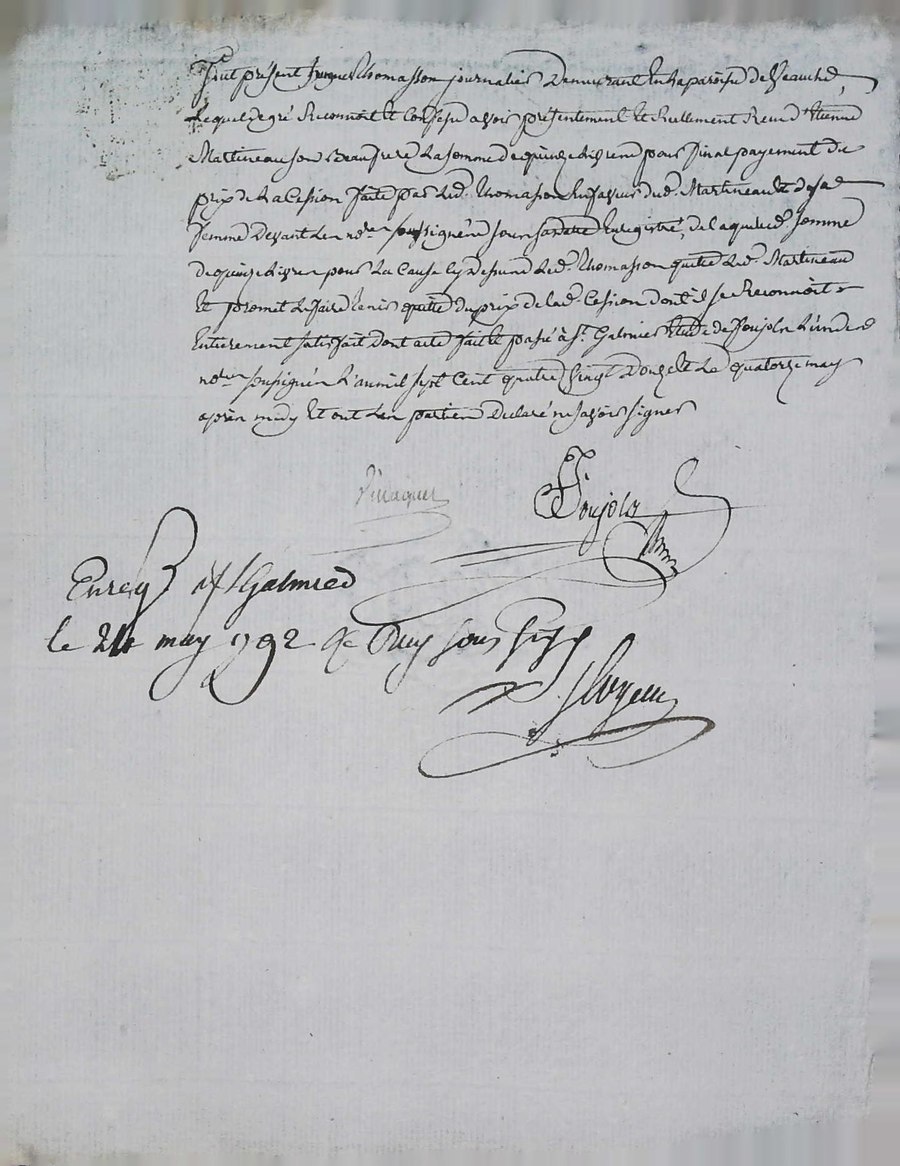 Fut présent Jacques Thomasson journalier demeurant en la paroise de Veauche
Lequel de gré Reconnoit et Confesse avoir présentement et Reellement Reçu d'Etienne
Martineau son Beaufrere La somme de quinze Livres pour final payement du
prix de La Cession faite par Led. Thomasson en faveur dud. Martineau et de sa
femme devant Les nores soussignés son sa datte Enregistré, de laquelle somme
de quinze Livres pour La Cause cy dessus Led. Thomasson quitte Led. Martineau
Et promet Le faire tenir quitte du prix de lad. Cession dont il se Reconnoit
Entierement satisfait dont acte fait et passé à St. Galmier Etude de Poujols L'un des
nores soussignés L'an mil sept Cent quatre vingt douze et Le quatorze may
après midy Et ont Les parties Declaré ne savoir signer
Poujols
Enreg à St Galmier
le 24 may 1792 Rc Quinze sous